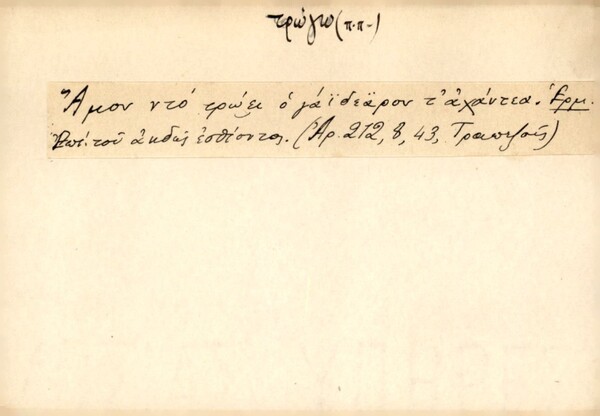 τρώγω (π.π-)
Ἄμον ντό τρώει ὁ γάϊδεᾱρον τ' ἀχάντεα. Ἑρμ.
Ἐπὶ τοῦ ἀηδῶς ἐσθίοντος. (Ἀρ. 212, 8, 43, Τραπεζοῦς)